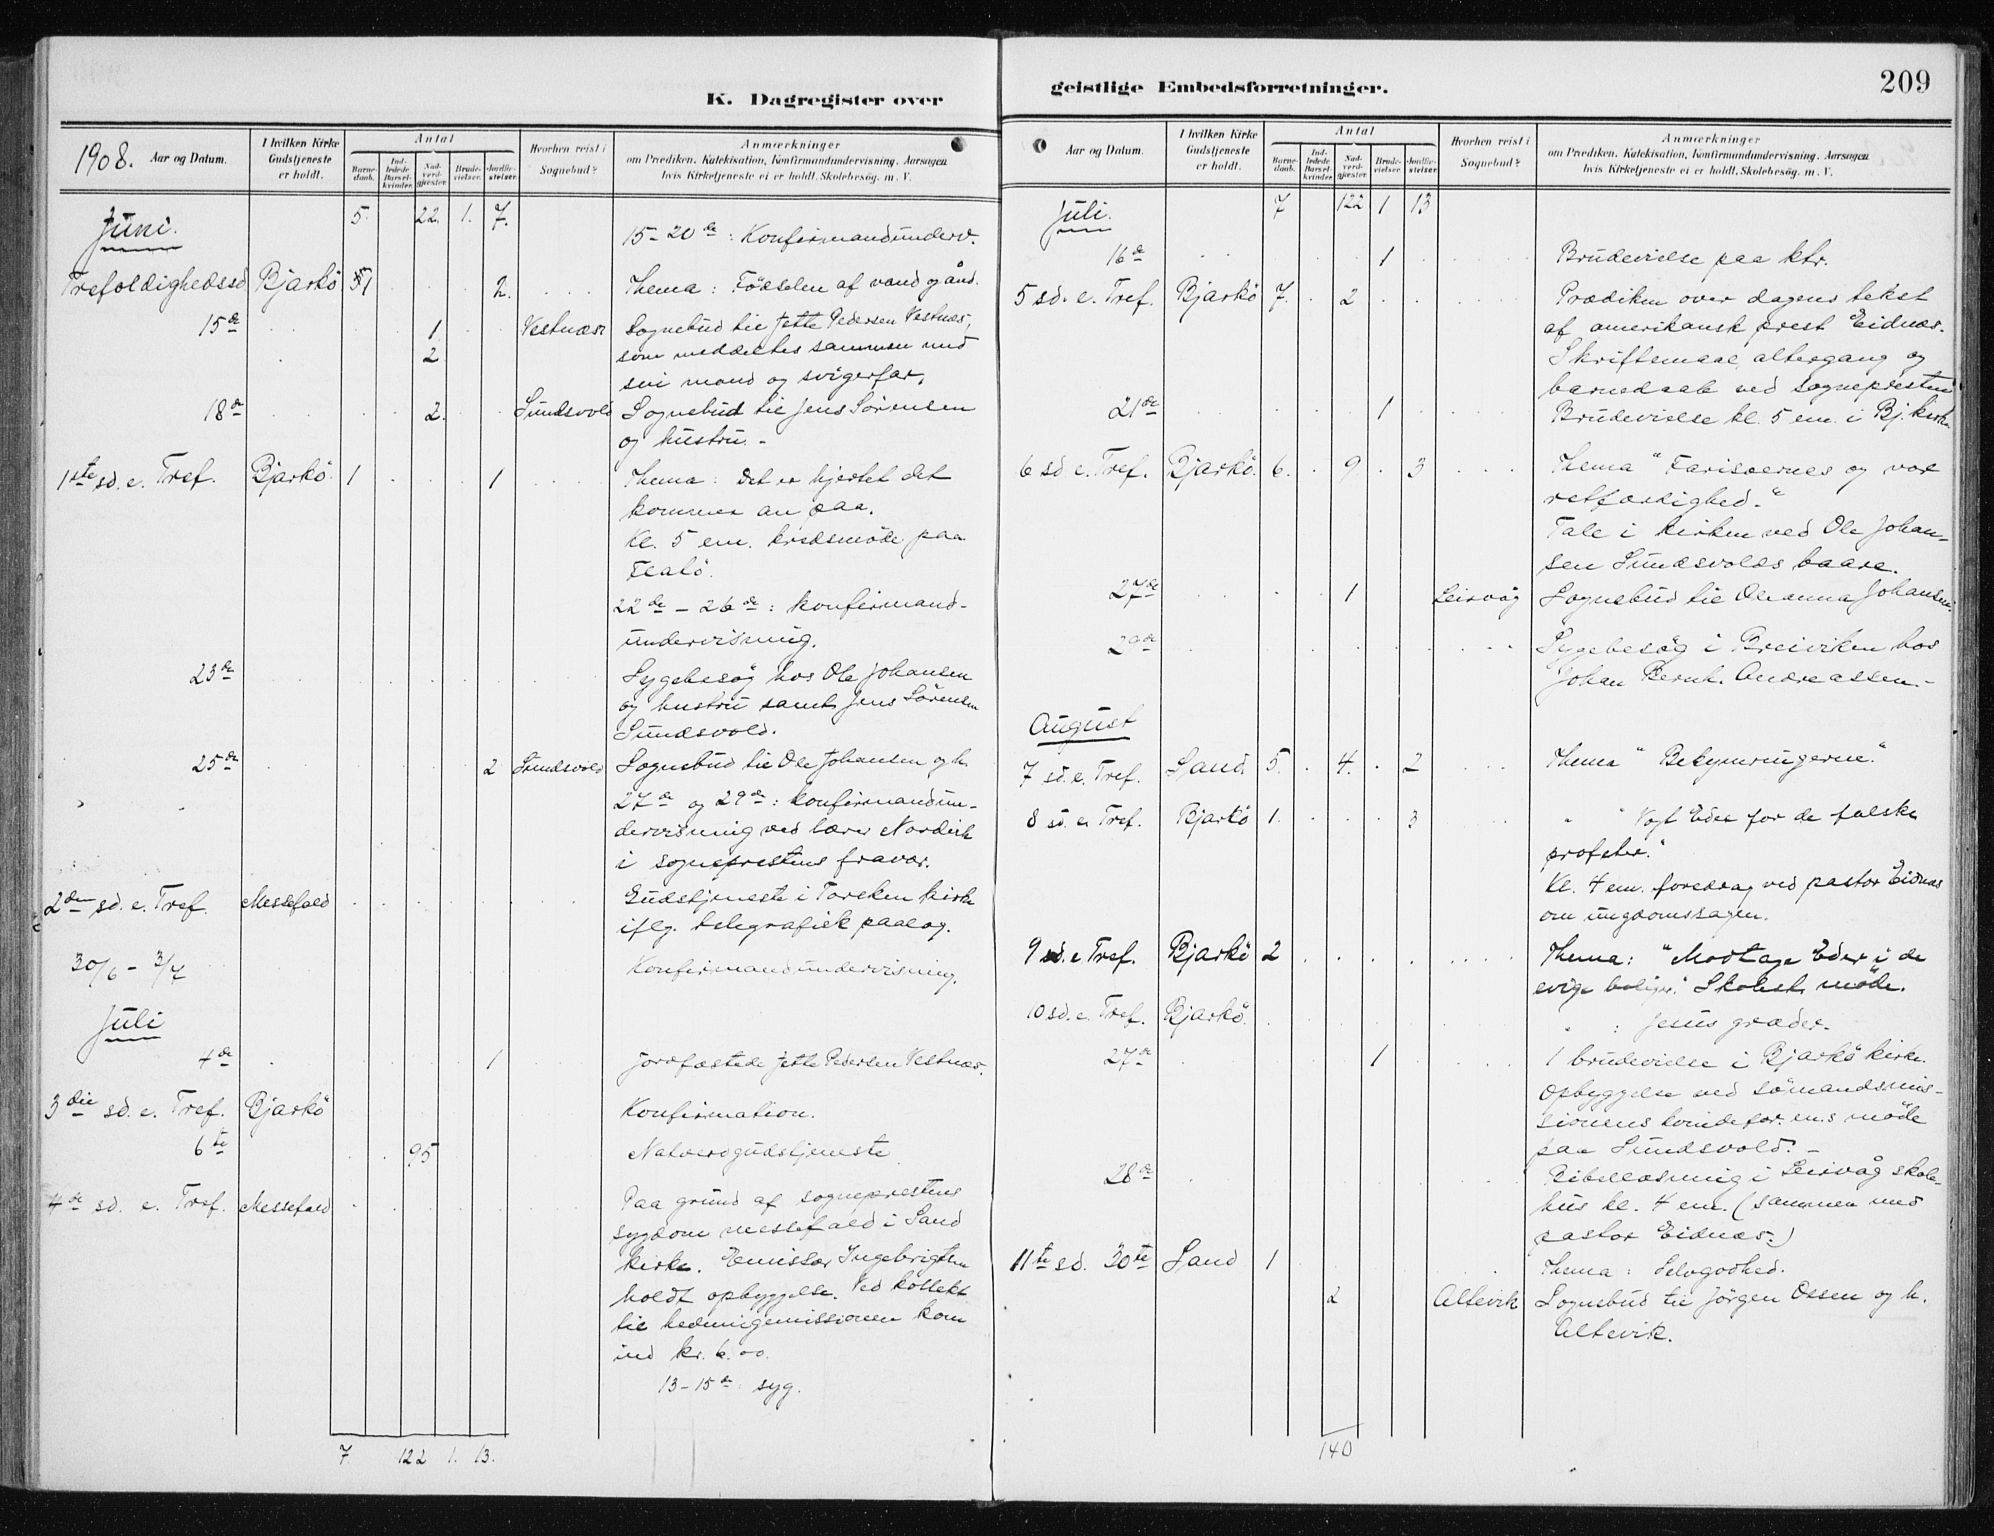 K. Dagregister over
1908. Aar og Datum.
I hvilken Kirke Gudstjeneste er holdt.
Antal
Barnedaab.
Indledede Barselkvinder.
Nadverdgjæster.
Brudevielser.
Jordfæstelser.
Hvorhen reist i Sognebud?
Anmærkninger
om Prædiken, Katekisation, Konfirmandundervisning, Aarsagen
hvis Kirketjeneste ei er holdt, Skolebesøg, m. V.
Juni. 5. 22. 1. 7.
15-20de: Konfirmandunderv.
Trefoldighedssd Bjarkö 1 2. Thema: Födselen af vand og ånd.
15de 1 Vestnæs Sognebud til Jette Pedersen Vestnæs,
2 som meddeltes sammen med
sin mand og svigerfar.
18de 2. Sundsvold Sognebud til Jens Sørensen
og hustru. -
1ste sd. e. Tref. Bjarkö 1 1 Thema: Det er hjertet det
kommer an paa.
Kl. 5 em. kredsmöde paa
Flatö.
22de - 26de: konfirmand-
undervisning.
23de Sygebesög hos Ole Johansen
og hustru samt Jens Sörensen
Sundsvold.
25de 2 Sundsvold Sognebud til Ole Johansen og h.
27de og 29de: konfirmandun-
dervisning ved lærer Nordvik
i sogneprestens fravær.
2den sd. e. Tref. Messefald Gudstjeneste i Torsken kirke
iflg. telegrafisk paalæg.
30/6 - 3/7 Konfirmandundervisning.
Juli
4de 1 Jordfæstede Jette Pedersen Vestnæs.
3die sd. e. Tref. Bjarkö Konfirmation.
6te 95 Natverdgudstjeneste
4de sd. e. Tref. Messefald Paa grund af sogneprestens
sygdom messefald i Sand
kirke. Emissær Ingebrigtsen
holdt opbyggelse. Ved kollekt
til hedningemissionen kom
ind kr. 6.00.
13-15de syg.
7. 122 1. 13.
geistlige Embedsforretninger.
209
Aar og Datum.
I hvilken Kirke Gudstjeneste er holdt.
Antal
Barnedaab.
Indledede Barselkvinder.
Nadverdgjæster.
Brudevielser.
Jordfæstelser.
Hvorhen reist i Sognebud?
Anmærkninger
om Prædiken, Katekisation, Konfirmandundervisning, Aarsagen
hvis Kirketjeneste ei er holdt, Skolebesøg, m. V.
Juli. 7 122 1 13
16de 1 Brudevielse paa ktr.
5 sd. e. Tref. Bjarkö 7. 2 Prædiken over dagens tekst
af amerikansk prest Eidnæs.
Skriftemaal, altergang og
barnedaab ved sognepresten
21de 1 Brudevielse kl. 5 em. i Bj. kirke
6 sd. e. Tref. Bjarkö. 6. 9 3 Thema "Farisæernes og vor
retfærdighed."
Tale i kirken ved Ole Johan-
sen Sundsvolds baare.
27de 1 Leirvåg Sognebud til Oleanna Johansen.
29de Sygebesög i Breiviken hos
Johan Bernh. Andreassen. -
August
7 sd. e. Tref. Sand 5. 4. 2 Thema "Bekymringerne."
8 sd. e. Tref. Bjarkö 1. 3 " "Vogt Eder for de falske
profeter."
Kl. 4 em. foredrag ved pastor Eidnæs
om ungdomssagen.
9 sd. e Tref. Bjarkö 2 Thema: "Modtage Eder i de
evige boliger." Skolest. möde.
10 sd. e. Tref. Bjarkö. " : Jesus græder.
27de 1 1 brudevielse i Bjarkö kirke.
Opbyggelse ved sömandsmis-
sionens kvindeforen.s möde
paa Sundsvold. -
28de Bibellæsning i Leirvåg skole-
hus kl. 4 em. (sammen med
pastor Eidnæs.)
11te sd. 30te Sand 1 Thema: Selvgodhed.
2 Altevik Sognebud til Jörgen Olsen og h.
Altevik.
140